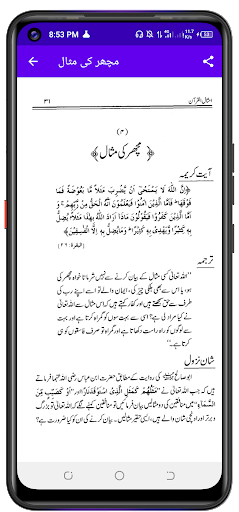 8:53 PM
11.7 K/s
مچھر کی مثال
امثال القرآن
۳۱
(۳)
﴿ مچھر کی مثال ﴾
آیت کریمہ
﴿إِنَّ اللّٰهَ لَا يَسْتَحْيٖ أَنْ يَّضْرِبَ مَثَلًا مَّا بَعُوْضَةً فَمَا
فَوْقَهَا فَأَمَّا الَّذِيْنَ آمَنُوْا فَيَعْلَمُوْنَ أَنَّهُ الْحَقُّ مِنْ رَّبِّهِمْ وَ
أَمَّا الَّذِيْنَ كَفَرُوْا فَيَقُوْلُوْنَ مَاذَا أَرَادَ اللّٰهُ بِهٰذَا مَثَلًا يُضِلُّ
بِهٖ كَثِيْرًا وَّيَهْدِيْ بِهٖ كَثِيْرًا وَمَا يُضِلُّ بِهٖ إِلَّا الْفٰسِقِيْنَ﴾
(البقرة:۲۶)
ترجمہ
"اللہ تعالیٰ کسی مثال کے بیان کرنے سے نہیں شرماتا خواہ مچھر کی
ہو، یا اس سے بھی ہلکی چیز کی، ایمان والے تو اسے اپنے رب کی
طرف سے حق سمجھتے ہیں اور کفار کہتے ہیں کہ اس مثال سے اللہ تعالیٰ
نے کیا مراد لی ہے؟ اسی سے بہت سوں کو گمراہ کرتا ہے اور بہت
سے لوگوں کو راہ راست دکھاتا ہے اور گمراہ تو صرف فاسقوں کو ہی
کرتا ہے۔"
شان نزول
ابو صالح کی روایت کے مطابق حضرت ابن عباس رضی اللہ عنہما فرماتے
ہیں کہ جب اللہ تعالیٰ نے "مَثَلُهُمْ كَمَثَلِ الَّذِي اسْتَوْقَدَ نَارًا" اور "أَوْ كَصَيِّبٍ مِّنَ
السَّمَاءِ" میں منافقین کی دو مثالیں بیان فرمائیں تو منافقین کہنے لگے کہ اللہ تعالیٰ تو بزرگ
و برتر اور اونچی شان والے ہیں، ایسی حقیر مثالیں بیان کرنے کی ان کو کیا ضرورت ہے؟